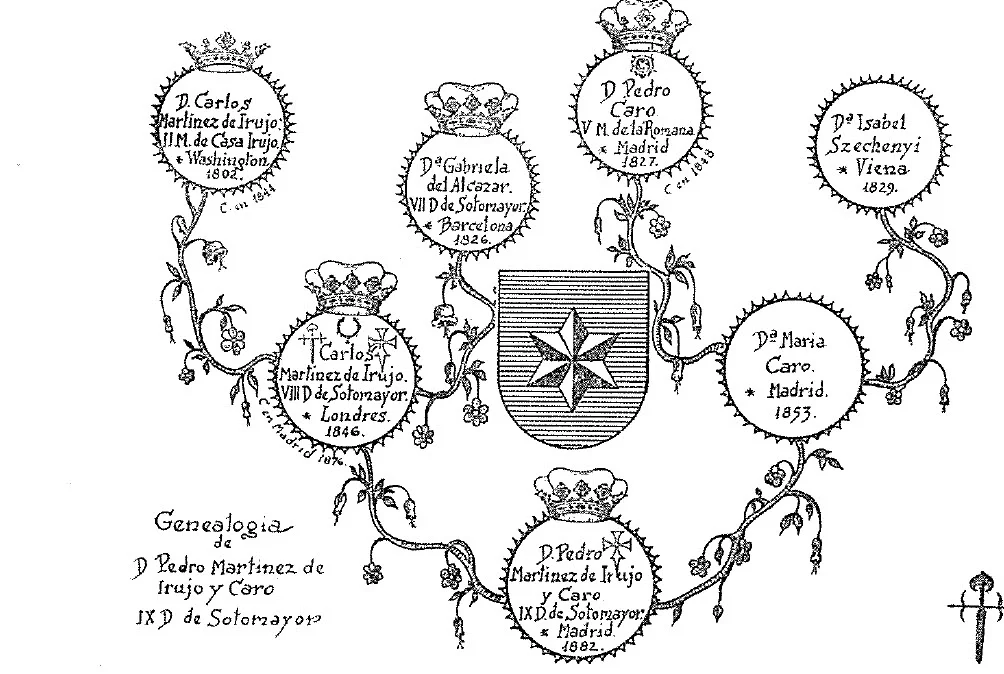 D. Carlos
Martinez de Irujo.
II M. de Casa Irujo.
* Washington
1802.
C. en 1844
Dª Gabriela
del Alcazar.
VII D de Sotomayor.
* Barcelona
1826.
D Pedro
Caro
V M. de la Romana
* Madrid
1827.
C en 1848
Dª Isabel
Szechenyi
* Viena
1829.
Carlos
Martinez de Irujo.
VIII D de Sotomayor.
* Londres.
1846.
C en Madrid 1876.
Dª Maria
Caro.
* Madrid.
1853.
D. Pedro
Martinez de Irujo
y Caro
IX D. de Sotomayor.
* Madrid.
1882.
Genealogia
de
D Pedro Martinez de
Irujo y Caro
IX D de Sotomayor